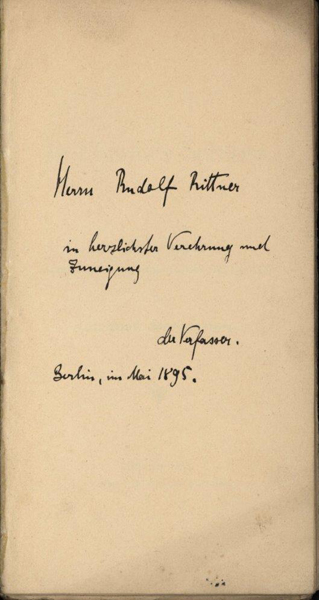 Herrn Rudolf Rittner
in herzlichster Verehrung und
Zuneigung
der Verfasser.
Berlin, im Mai 1895.